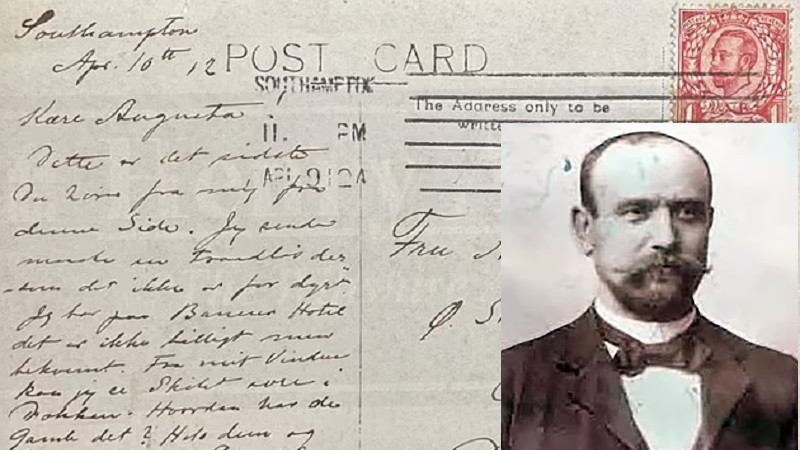 Southampton
Apr. 10th 12
POST CARD
SOUTHAMPTON
The Address only to be
11. PM
AP 9 12A
Kære Augusta.
Dette er det sidste
Du hører fra mig fra
denne Side. Jeg sender
maaske en Traadløs der-
som det ikke er for dyrt
Jeg bor paa Hotel
det er ikke billigt men
bekvemt. Fra mit Vindue
kan jeg se Skibet
Dokken. Hvordan har de
Gamle det? Hils dem og
Fru